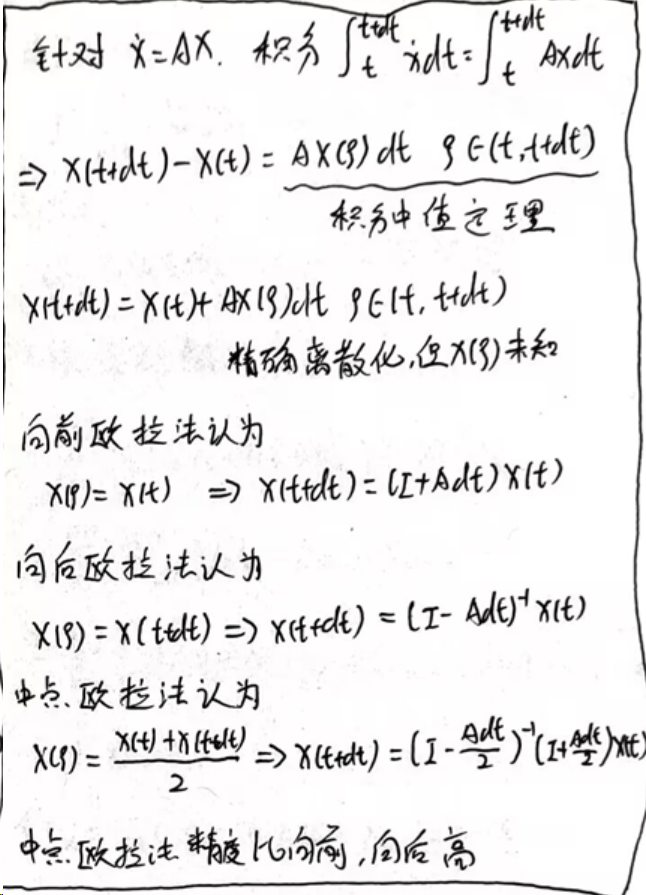 针对 ẋ=AX. 积分 ∫_t^{t+dt} ẋdt=∫_t^{t+dt} AXdt
⇒ X(t+dt)-X(t)= AX(ξ)dt ξ∈(t,t+dt)
积分中值定理
X(t+dt)=X(t)+AX(ξ)dt ξ∈(t,t+dt)
精确离散化,但X(ξ)未知
向前欧拉法认为
X(ξ)=X(t) ⇒ X(t+dt)=(I+Adt)X(t)
向后欧拉法认为
X(ξ)=X(t+dt)⇒X(t+dt)=(I-Adt)^{-1}X(t)
中点欧拉法认为
X(ξ)=\frac{X(t)+X(t+dt)}{2}⇒X(t+dt)=(I-\frac{Adt}{2})^{-1}(I+\frac{Adt}{2})X(t)
中点欧拉法精度比向前,向后高